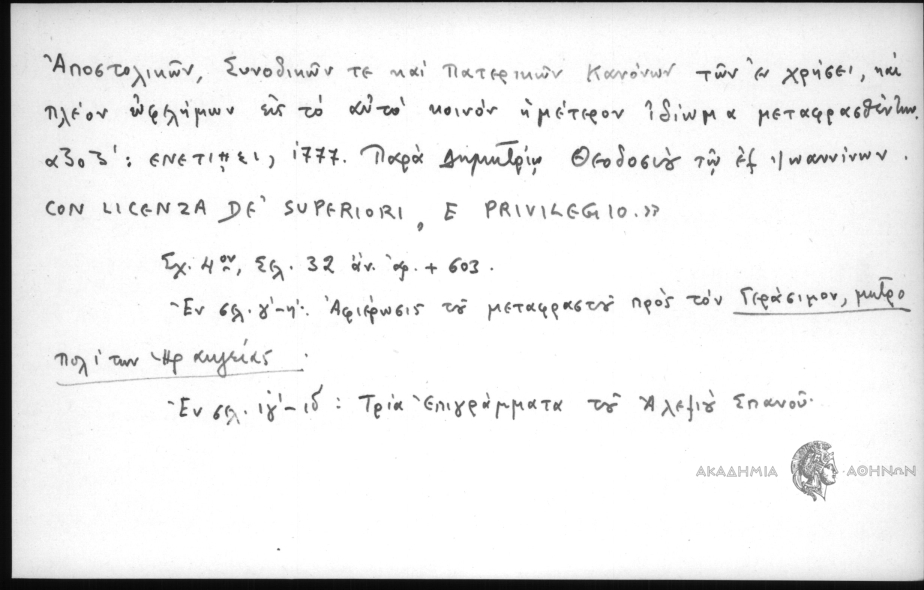 Ἀποστολικῶν, Συνοδικῶν τε καί Πατερικῶν Κανόνων τῶν ἐν χρήσει, καί
πλέον ὠφελήμων εἰς τό αὐτό κοινόν ἡμέτερον ἰδίωμα μεταφρασθέντων.
αψοζ': ΕΝΕΤΙῌΣΙ, 1777. Παρὰ Δημητρίῳ Θεοδοσίου τῷ ἐξ Ἰωαννίνων.
CON LICENZA DE' SUPERIORI, E PRIVILEGIO.»
Σχ. 4ον, Σελ. 32 ἀν. ἀρ. + 603.
Ἐν σελ. γ'-η': Ἀφιέρωσις τοῦ μεταφραστοῦ πρὸς τόν Γεράσιμον, μητρο
πολίτην Ἡρακλείας.
Ἐν σελ. ιγ'-ιδ': Τρία Ἐπιγράμματα τοῦ Ἀλεξίου Σπανοῦ.
ΑΚΑΔΗΜΙΑ ΑΘΗΝΩΝ